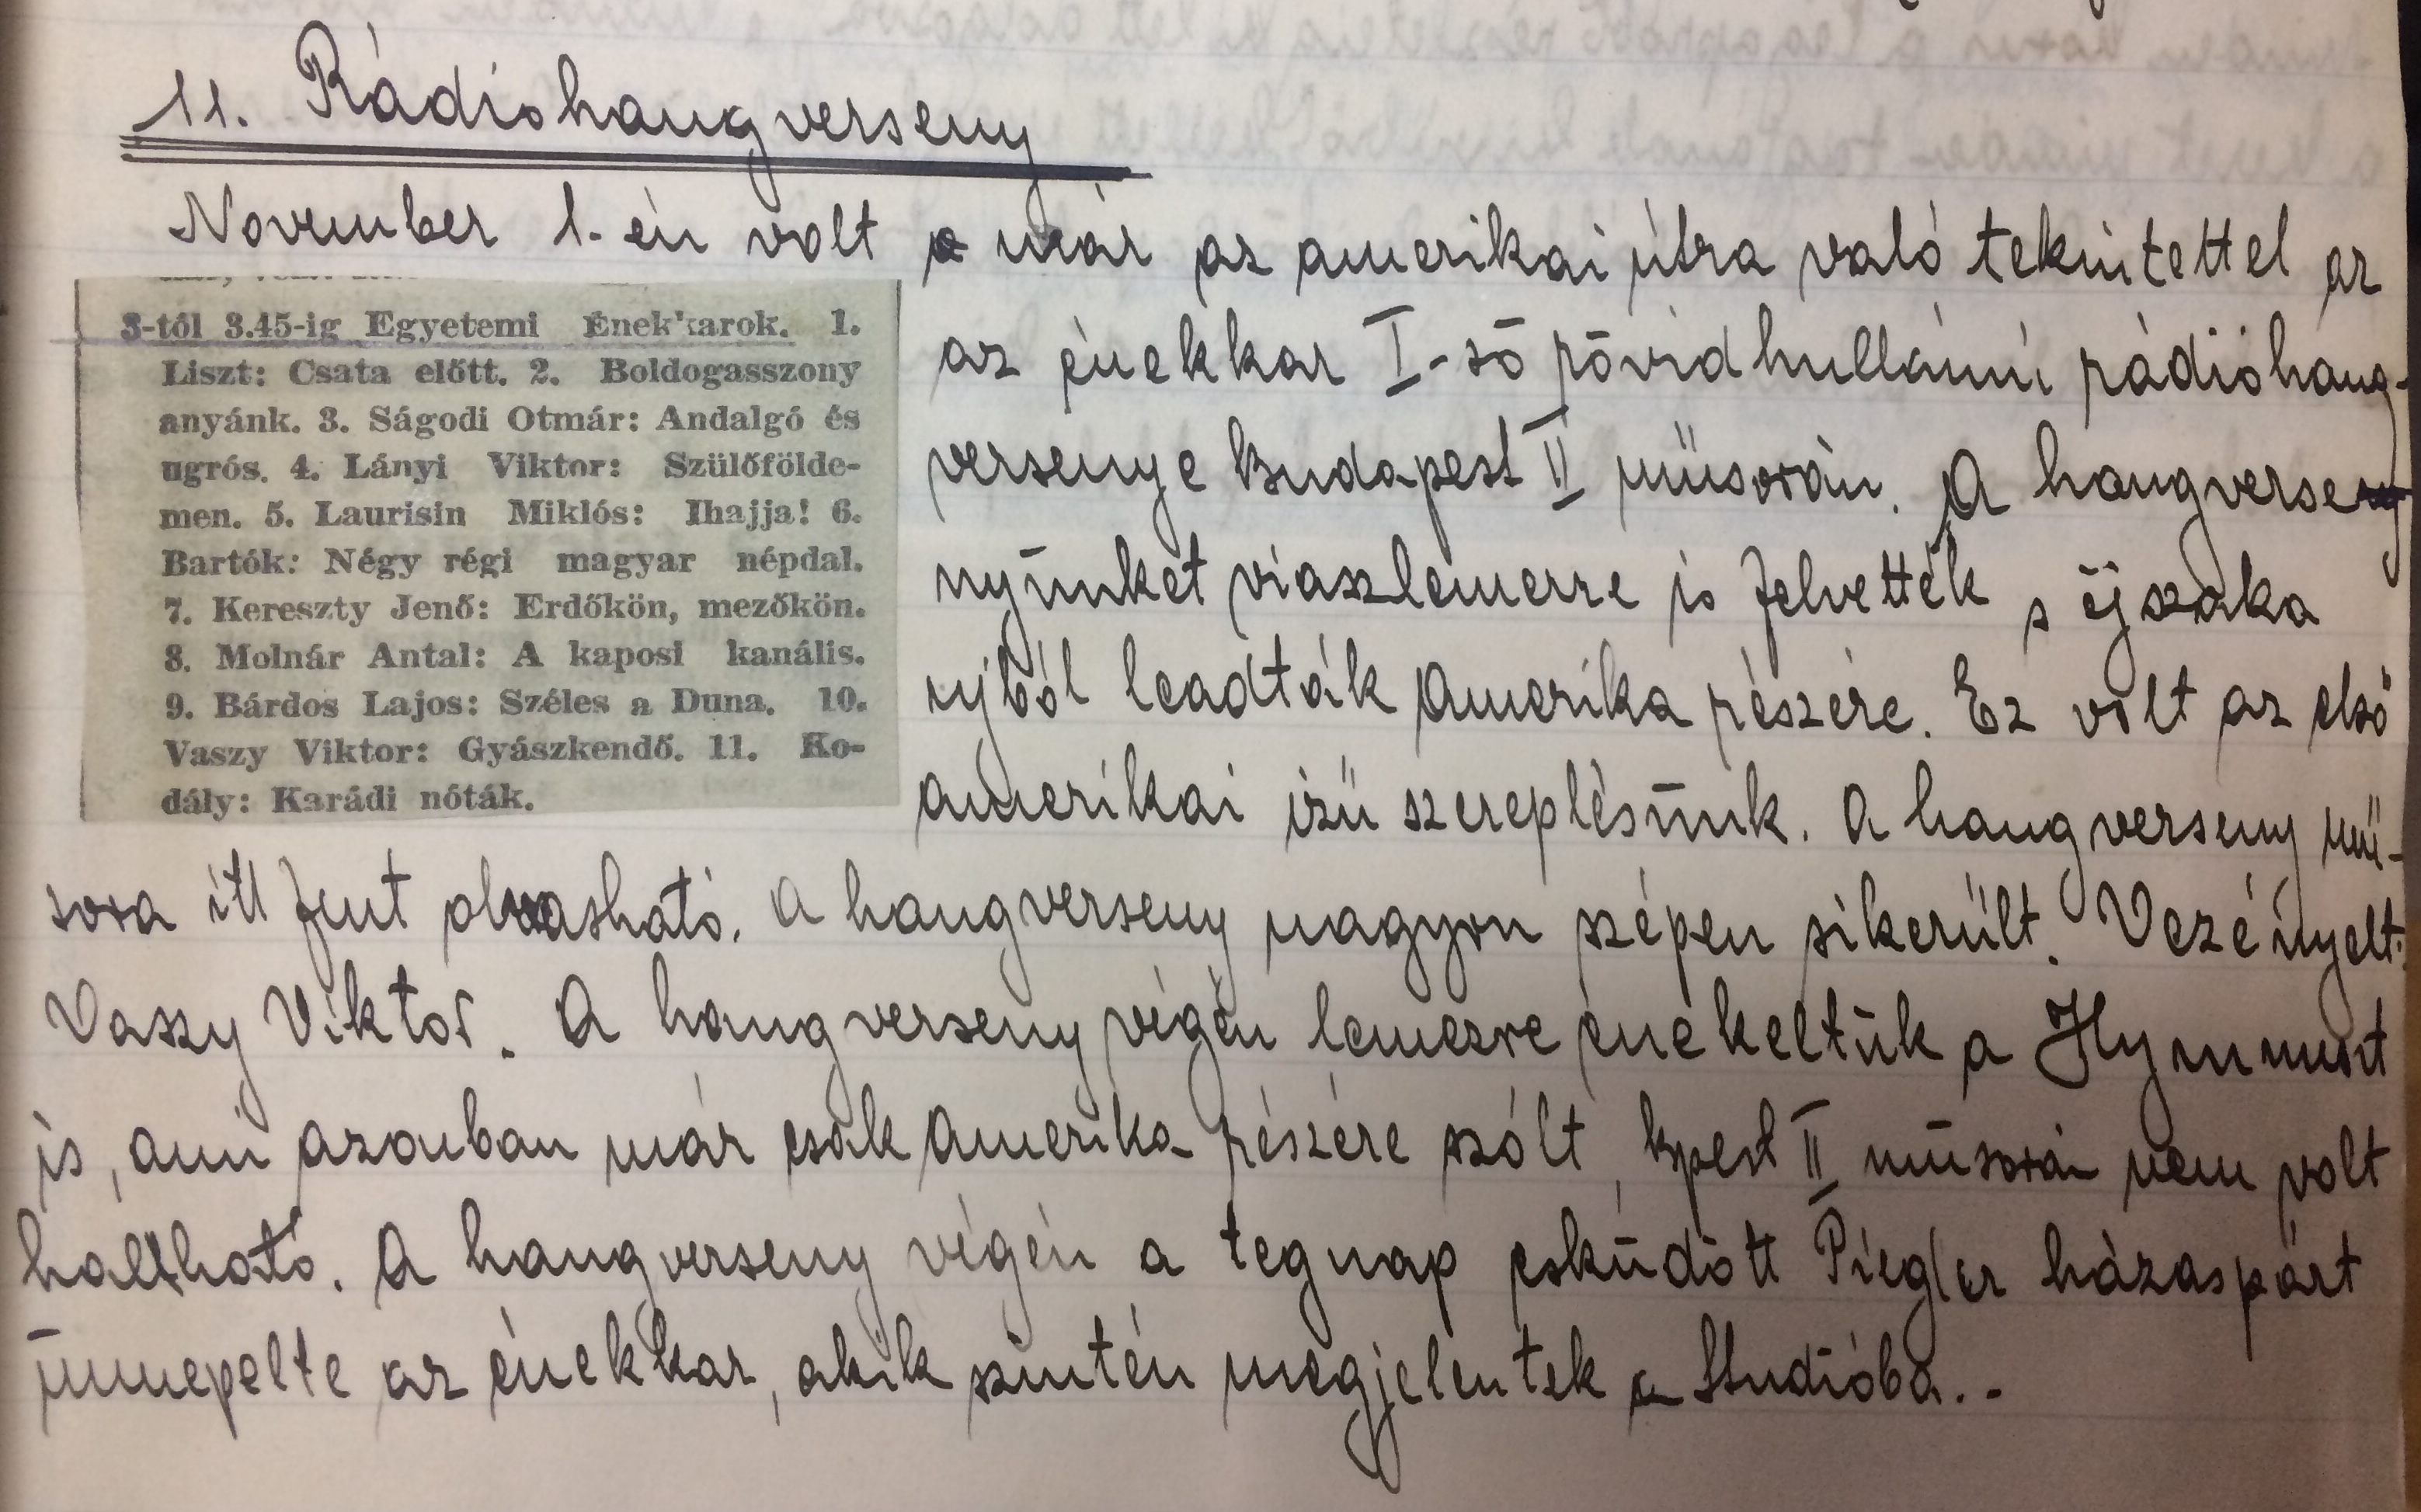 11. Rádióhangverseny
November 1-én volt a már az amerikai útra való tekintettel az
az énekkar I-ső rövidhullámú rádióhang-
versenye Budapest II műsorán. A hangverseny
nyünket viaszlemezre is felvették s éjszaka
ujból leadták Amerika részére. Ez volt az első
amerikai izü szereplésünk. A hangverseny mü-
sora itt fent olvasható. A hangverseny nagyon szépen sikerült. Vezényelt:
Vaszy Viktor. A hangverseny végén lemezre énekeltük a Hymnust
is, ami azonban már csak Amerika részére szólt, bpest II műsorán nem volt
hallható. A hangverseny végén a tegnap esküdött Piegler házaspárt
ünnepelte az énekkar, akik szintén megjelentek a Studióba..-
3-tól 3.45-ig Egyetemi Énekkarok. 1.
Liszt: Csata előtt. 2. Boldogasszony
anyánk. 3. Ságodi Otmár: Andalgó és
ugrós. 4. Lányi Viktor: Szülőfölde-
men. 5. Laurisin Miklós: Ihajja! 6.
Bartók: Négy régi magyar népdal.
7. Kereszty Jenő: Erdőkön, mezőkön.
8. Molnár Antal: A kaposi kanális.
9. Bárdos Lajos: Széles a Duna. 10.
Vaszy Viktor: Gyászkendő. 11. Ko-
dály: Karádi nóták.